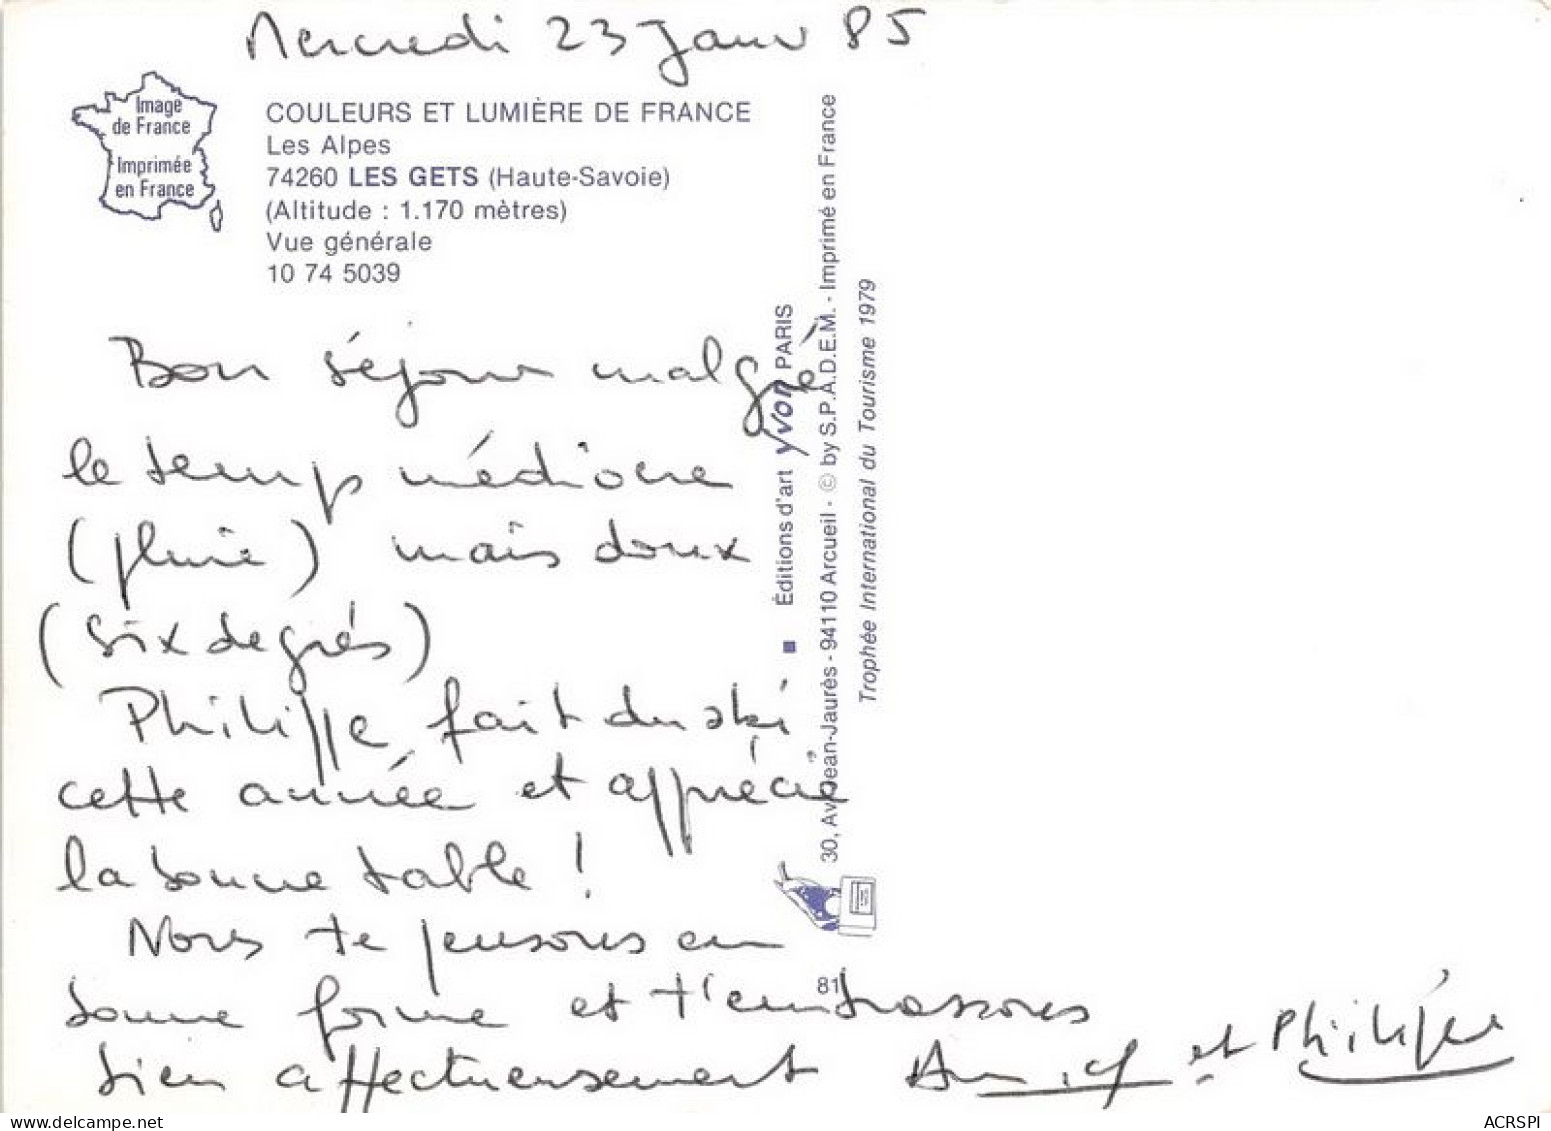 Mercredi 23 Janv 85
Image
de France
Imprimée
en France
COULEURS ET LUMIÈRE DE FRANCE
Les Alpes
74260 LES GETS (Haute-Savoie)
(Altitude : 1.170 mètres)
Vue générale
10 74 5039
Bon séjour malgré
le temps médiocre
(pluie) mais doux
(six degrés)
Philippe fait du ski
cette année et apprécie
la bonne table !
Nous te pensons en
bonne forme et t'embrassons
bien affectueusement
et Philippe
■ Éditions d'art yvon PARIS
30, Av. Jean-Jaurès - 94110 Arcueil - © by S.P.A.D.E.M. - Imprimé en France
Trophée International du Tourisme 1979
81
www.delcampe.net
ACRSPI